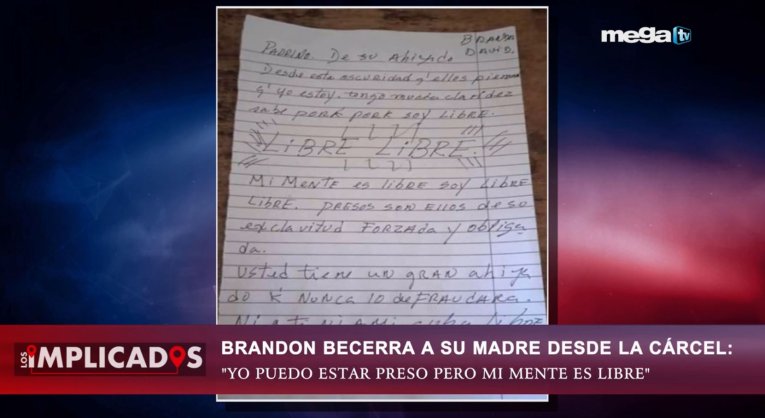 mega tv
BRANDON
DAVID.
PADRINO. De su Ahijado
Desde esta oscuridad q' ellos piensan
q' yo estoy. tengo mucha claridez
sabe PORK PORK SOY LIBRE.
LiBRE LiBRE.
Mi Mente es libre soy Libre
LiBRE. PRESOS SON Ellos de su
exclavitud FORZADA y obliga
da.
Usted tiene UN GRAN ahija
do K' NUNCA lo deFRAUDARA.
Ni a ti Ni A Mi cuba libre
LOS IMPLICADOS
BRANDON BECERRA A SU MADRE DESDE LA CÁRCEL:
"YO PUEDO ESTAR PRESO PERO MI MENTE ES LIBRE"